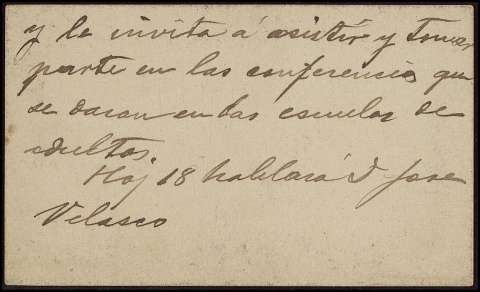 y le invita á asistir y tomar
parte en las conferencias que
se daran en las escuelas de
adultos.
Hoj 18 hablará D Jose
Velasco